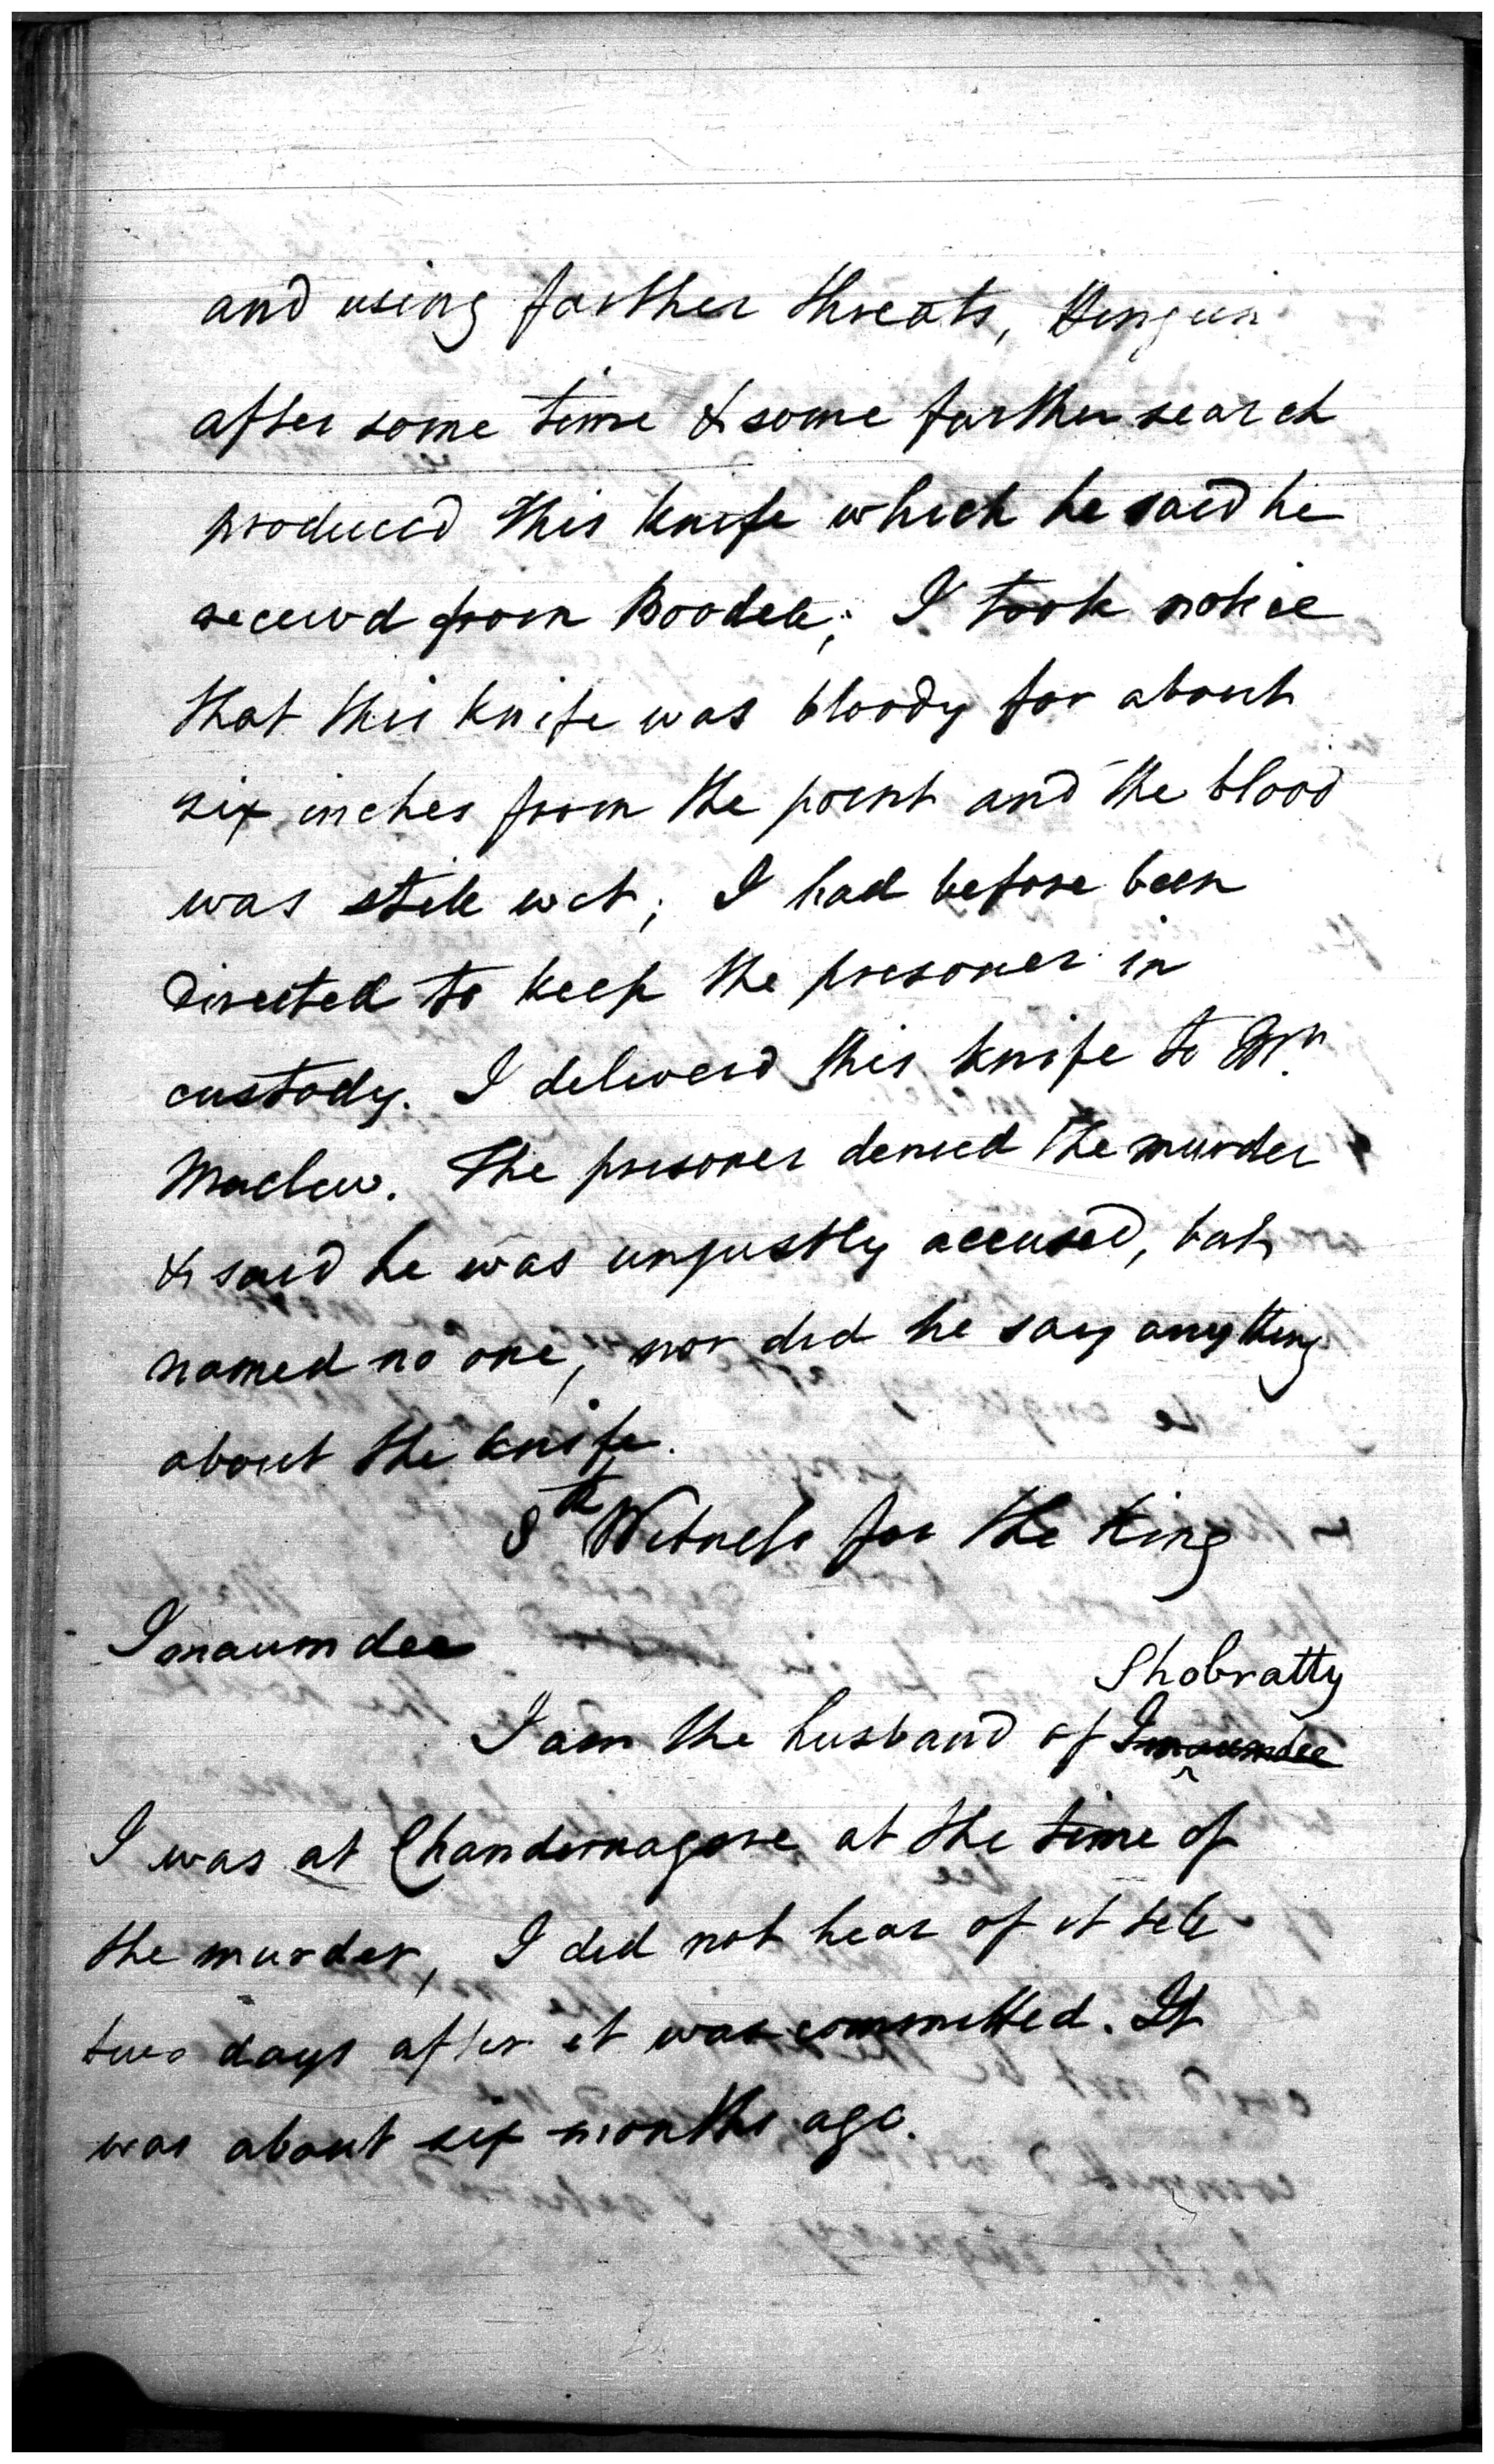 and using farther threats,
after some time & some farther search
produced this knife which he said he
receivd from Boodee; I took notice
that this knife was bloody for about
six inches from the point and the blood
was still wet; I had before been
Directed to keep the prisoner in
custody. I deliverd this knife to
The prisoner denied the murder
& said he was unjustly accused, but
named no one, nor did he say anything
about the knife.
8th Witness for the King
Imaumdee
Shobratty
I am the husband of Imaumdee
I was at Chandernagore at the time of
the murder, I did not hear of it till
two days after it was committed. It
was about six months ago.